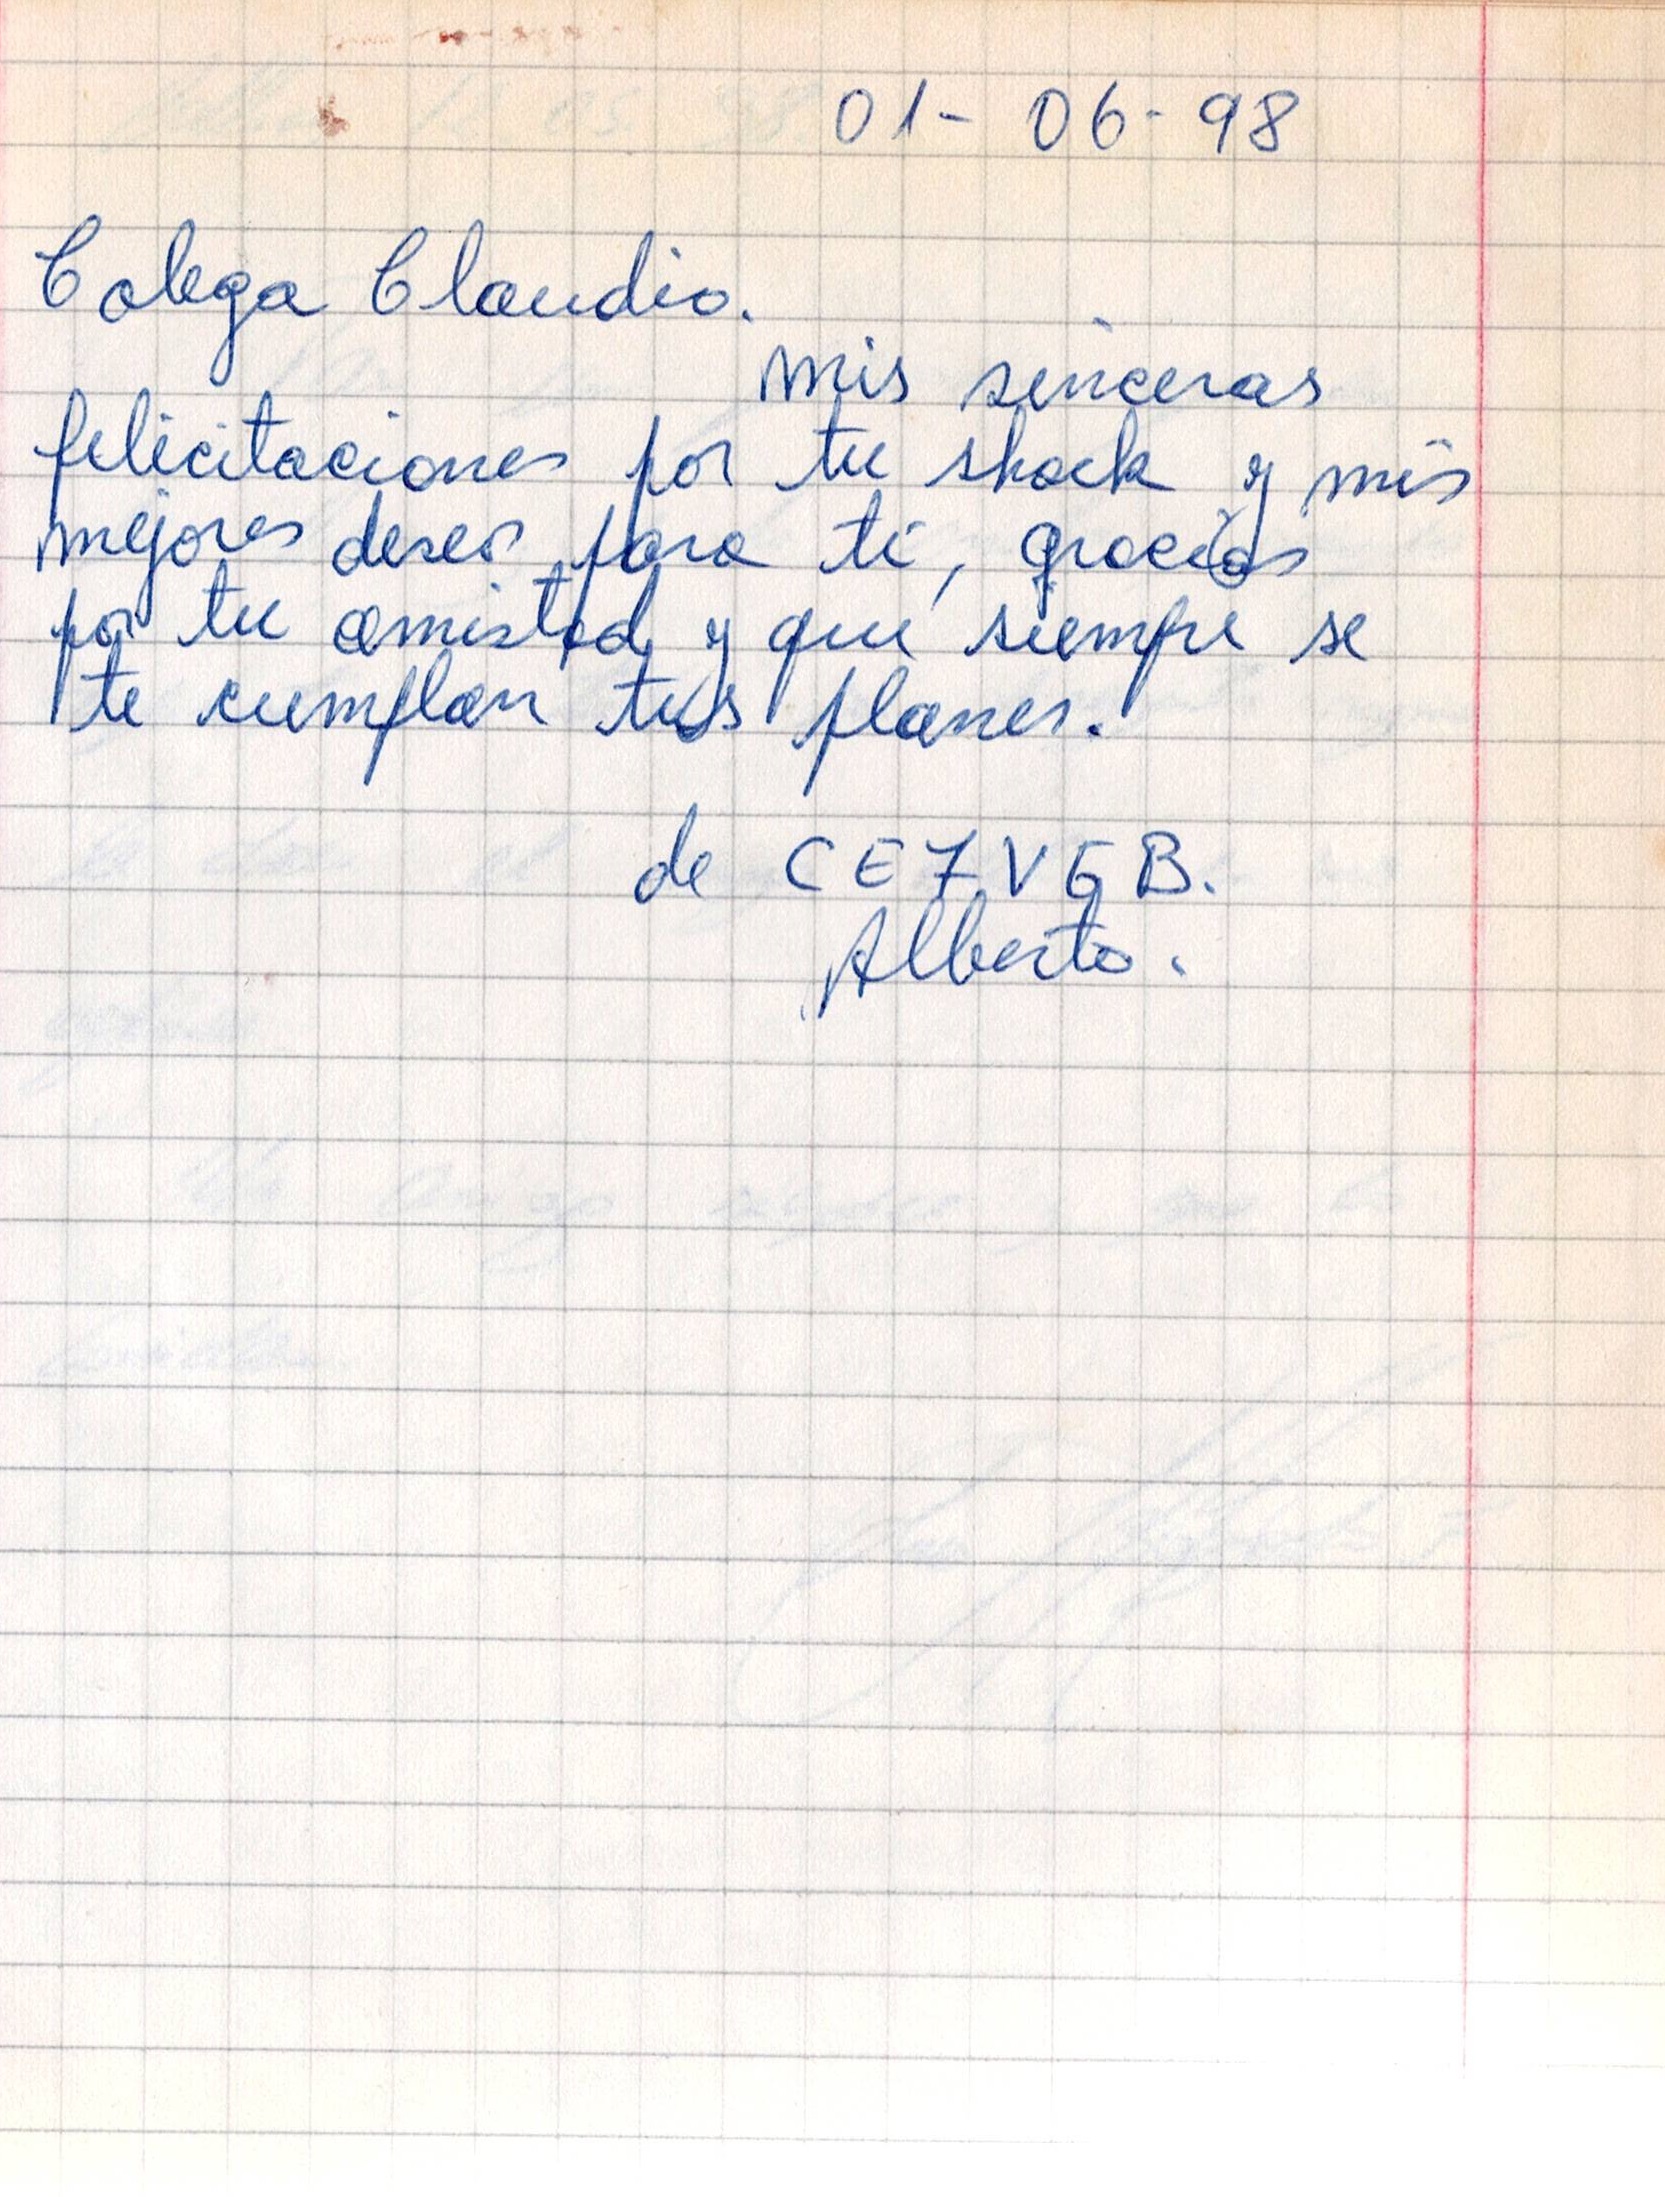 01-06-98
Colega Claudio.
Mis sinceras
felicitaciones por tu shack y mis
mejores deseos para ti, gracias
por tu amistad y que siempre se
te cumplan tus planes.
de CE7VGB.
Alberto.